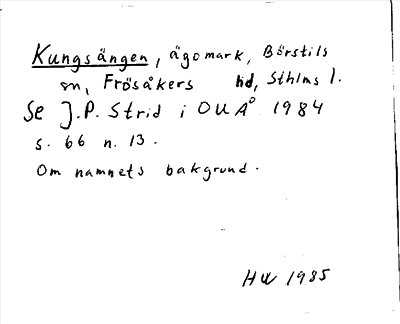 Kungsängen, ägomark, Börstils
sn, Frösåkers hd, Sthlms l.
Se J.P. Strid i OUÅ 1984
s. 66 n. 13.
Om namnets bakgrund.
HW 1985